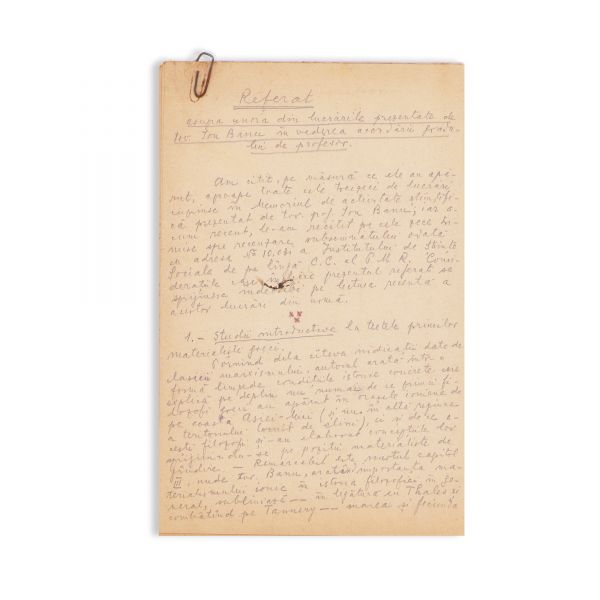 Referat
asupra unora din lucrările prezentate de
tov. Ion Banu în vederea acordării gradu-
lui de profesor.
Am citit, pe măsură ce ele au apă-
rut, aproape toate cele treizeci de lucrări
cuprinse în Memoriul de activitate științifi-
că prezentat de tov. prof. Ion Banu, iar a-
cum recent, le-am recitit pe cele zece tri-
mise spre recenzare subsemnatului odată
cu adresa No 10.031 a Institutului de Științe
Sociale de pe lîngă C.C. al P.M.R. Consi-
derațiile care prezentul referat se
sprijinesc îndeosebi pe lectura recentă a
acestor lucrări din urmă.
1. – Studiu introductiv la textele primilor
materialiști greci.
Pornind dela cîteva indicații date de
clasicii marxismului, autorul arată într-o
formă limpede condițiile istorice concrete care
explică pe deplin nu numai de ce primii fi-
lozofi greci au apărut în orașele ioniene de
pe coasta Asiei-Mici (și nu în altă regiune
a teritoriului locuit de elini), ci și de ce a-
cești filozofi și-au elaborat concepțiile lor
sprijinindu-se pe poziții materialiste de
gîndire. – Remarcabil este capitol
III, unde tov. Banu, arată importanța ma-
terialismului ionic în istoria filozofiei în ge-
neral, subliniază — în legătură cu Thales și
combătînd pe Tannery — marea și fecunda